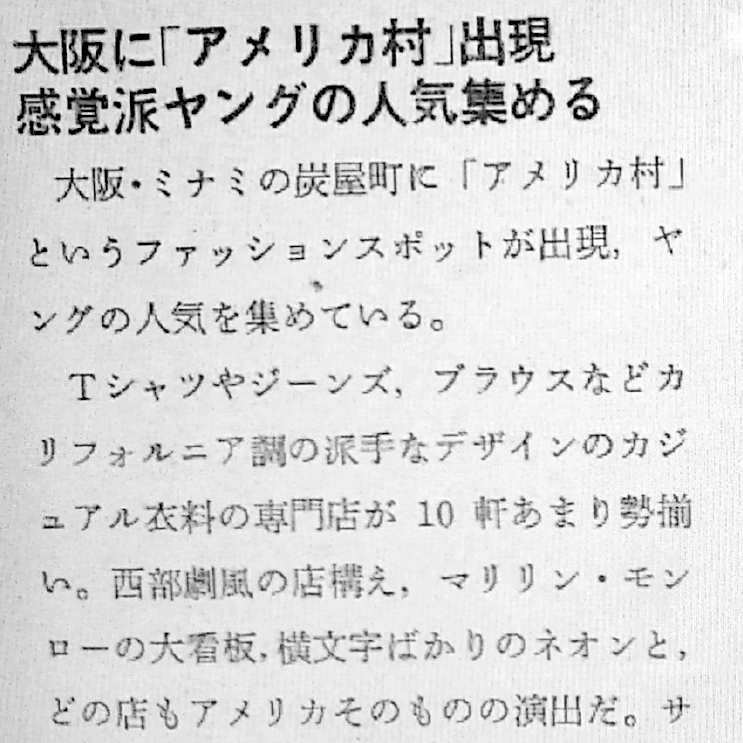 大阪に「アメリカ村」出現
感覚派ヤングの人気集める
大阪・ミナミの炭屋町に「アメリカ村」
というファッションスポットが出現，ヤ
ングの人気を集めている。
Tシャツやジーンズ，ブラウスなどカ
リフォルニア調の派手なデザインのカジ
ュアル衣料の専門店が 10 軒あまり勢揃
い。西部劇風の店構え，マリリン・モン
ローの大看板，横文字ばかりのネオンと，
どの店もアメリカそのものの演出だ。サ